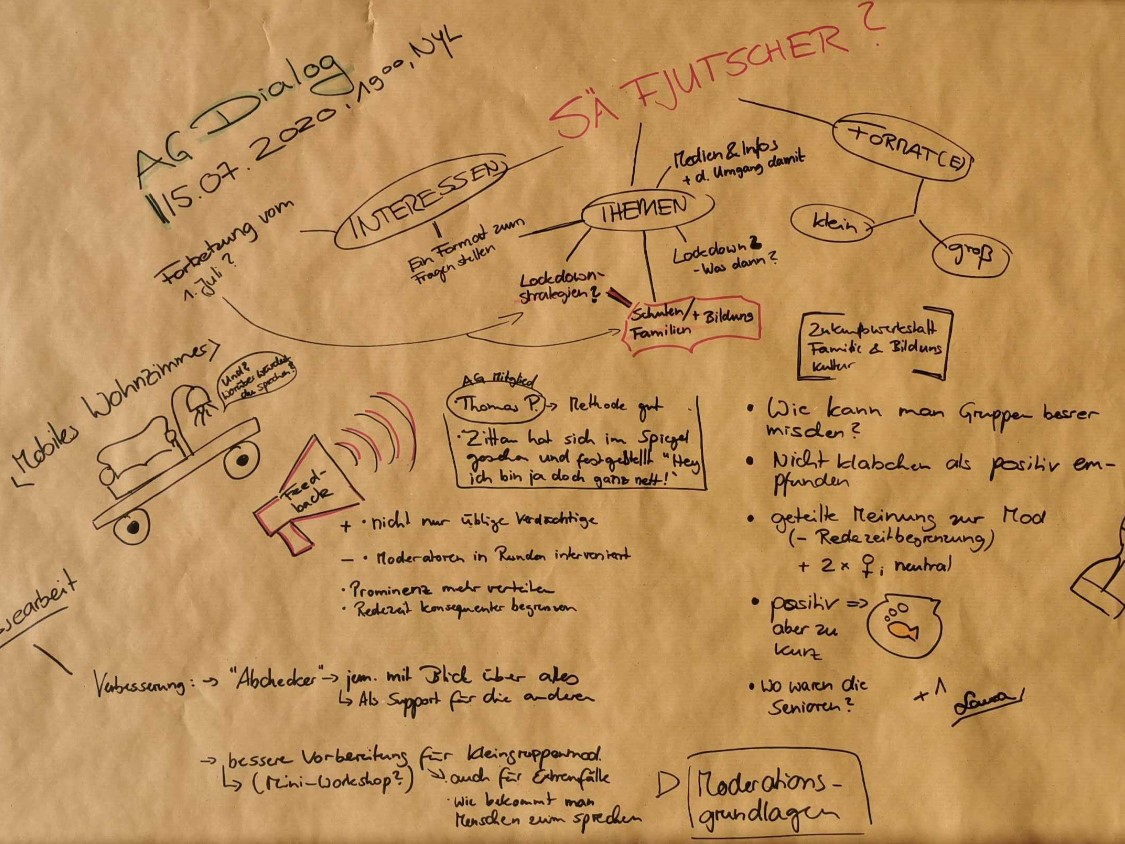 AG-Dialog
15.07.2020, 19⁰⁰, NYL
SÄ FJUTSCHER?
INTERESSEN
Ein Format zum
Fragen stellen
Fortsetzung vom
1. Juli?
THEMEN
Medien & Infos
+ d. Umgang damit
Lockdown 2
- Was dann?
Lockdown-
strategien?
Schulen/ + Bildung
Familien
FORMAT(E)
klein
groß
Zukunftswerkstatt
Familie & Bildung
Kultur
Mobiles Wohnzimmer
Und?
worüber würdest
du sprechen?
Feed-
back
AG Mitglied
Thomas P. → Methode gut
• Zittau hat sich im Spiegel
gesehen und festgestellt "Hey
ich bin ja doch ganz nett!"
+ • nicht nur üblige Verdächtige
- • Moderatoren in Runden interveniert
• Prominenz mehr verteilen
• Redezeit konsequenter begrenzen
• Wie kann man Gruppen besser
mischen?
• Nicht klatschen als positiv em-
pfunden
• geteilte Meinung zur Mod
(- Redezeitbegrenzung)
+ 2x ♀, neutral
• positiv ⇒
aber zu
kurz
• Wo waren die
Senioren?
+ 1 Laura
Verbesserung: → "Abchecker" → jem. mit Blick über alles
↳ Als Support für die anderen
→ bessere Vorbereitung für Kleingruppenmod.
↳ (Mini-Workshop?) ↘ auch für Extremfälle
• wie bekommt man
Menschen zum sprechen
▷ Moderations-
grundlagen